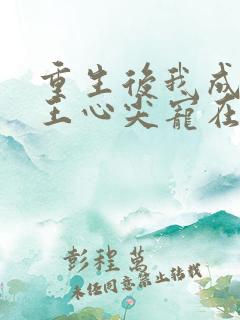 重生後我成
王心尖寵在
彭程萬
未经同意禁止转载